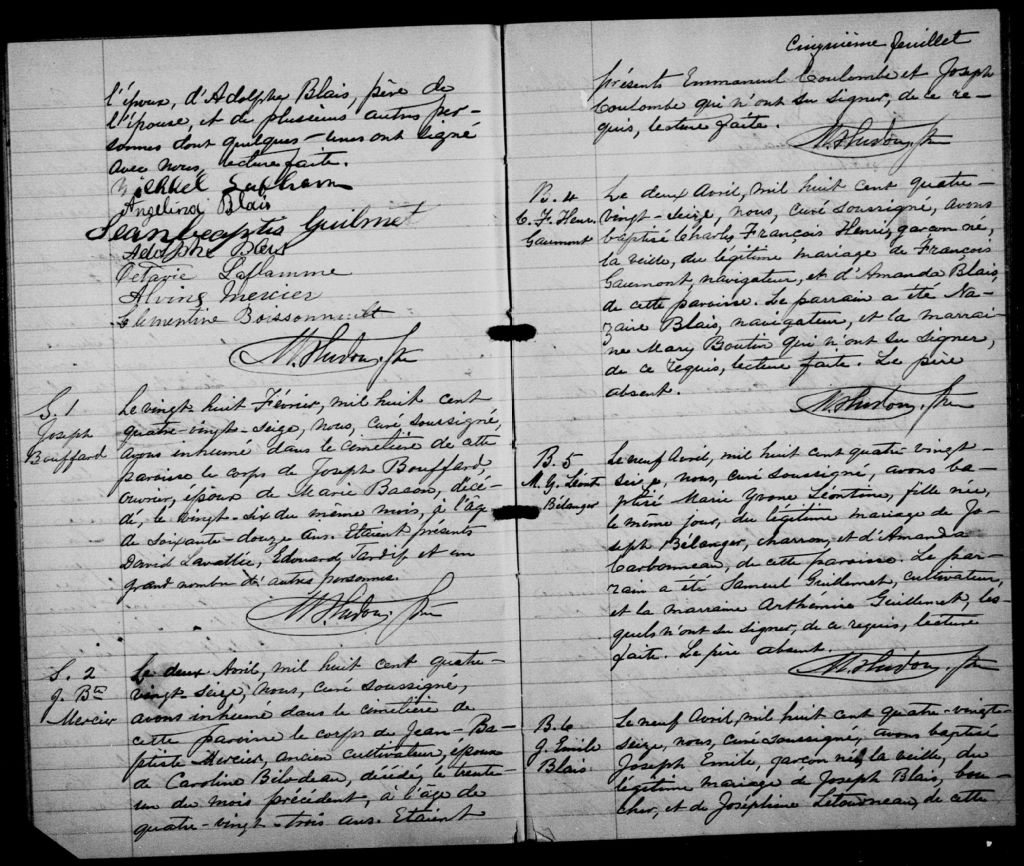 l'époux, d'Adolphe Blais, père de
l'épouse, et de plusieurs autres per-
sonnes dont quelques-unes ont signé
avec nous, lecture faite.
Angelina Blais
Jean Baptis Guilmet
Adolphe Blais
Octavie Laflamme
Alvina Mercier
Clementine Boissonnault
Ptre
S. 1
Joseph
Bouffard
Le vingt huit Février, mil huit cent
quatre-vingt-seize, nous, curé soussigné,
avons inhumé dans le cimetière de cette
paroisse le corps de Joseph Bouffard,
ouvrier, époux de Marie Bacon, décé-
dé, le vingt-six du même mois, à l'âge
de soixante-douze ans. Etaient présents
David Lavallée, Edouard Tardif et un
grand nombre d'autres personnes.
Ptre
S. 2
J. Bte
Mercier
Le deux Avril, mil huit cent quatre-
vingt-seize, nous, curé soussigné,
avons inhumé dans le cimetière de
cette paroisse le corps de Jean-Ba-
ptiste Mercier, ancien cultivateur, époux
de Caroline Bilodeau, décédé, le trente-
un du mois précédent, à l'âge de
quatre-vingt-trois ans. Etaient
Cinquième feuillet
présents Emmanuel Coulombe et Joseph
Coulombe qui n'ont su signer, de ce re-
quis, lecture faite.
Ptre
B. 4
C. F. Henri
Gaumont
Le deux Avril, mil huit cent quatre-
vingt-seize, nous, curé soussigné, avons
baptisé Charles François Henri, garçon né,
la veille, du légitime mariage de François
Gaumont, navigateur, et d'Amanda Blais,
de cette paroisse. Le parrain a été Na-
zaire Blais, navigateur, et la marrai-
ne Mary Boutin qui n'ont su signer,
de ce requis, lecture faite. Le père
absent.
Ptre
B. 5
M. Y. Léont.
Bélanger
Le neuf Avril, mil huit cent quatre-vingt-
seize, nous, curé soussigné, avons ba-
ptisé Marie Yvone Léontine, fille née,
le même jour, du légitime mariage de Jo-
seph Bélanger, charron, et d'Amanda
Carbonneau, de cette paroisse. Le par-
rain a été Samuel Guillemet, cultivateur,
et la marraine Arthémise Guillemet, les-
quels n'ont su signer, de ce requis, lecture
faite. Le père absent.
Ptre
B. 6
J. Emile
Blais
Le neuf Avril, mil huit cent quatre-vingt-
seize, nous, curé soussigné, avons baptisé
Joseph Emile, garçon né, la veille, du
légitime mariage de Joseph Blais, bou-
cher, et de Joséphine Létourneau, de cette